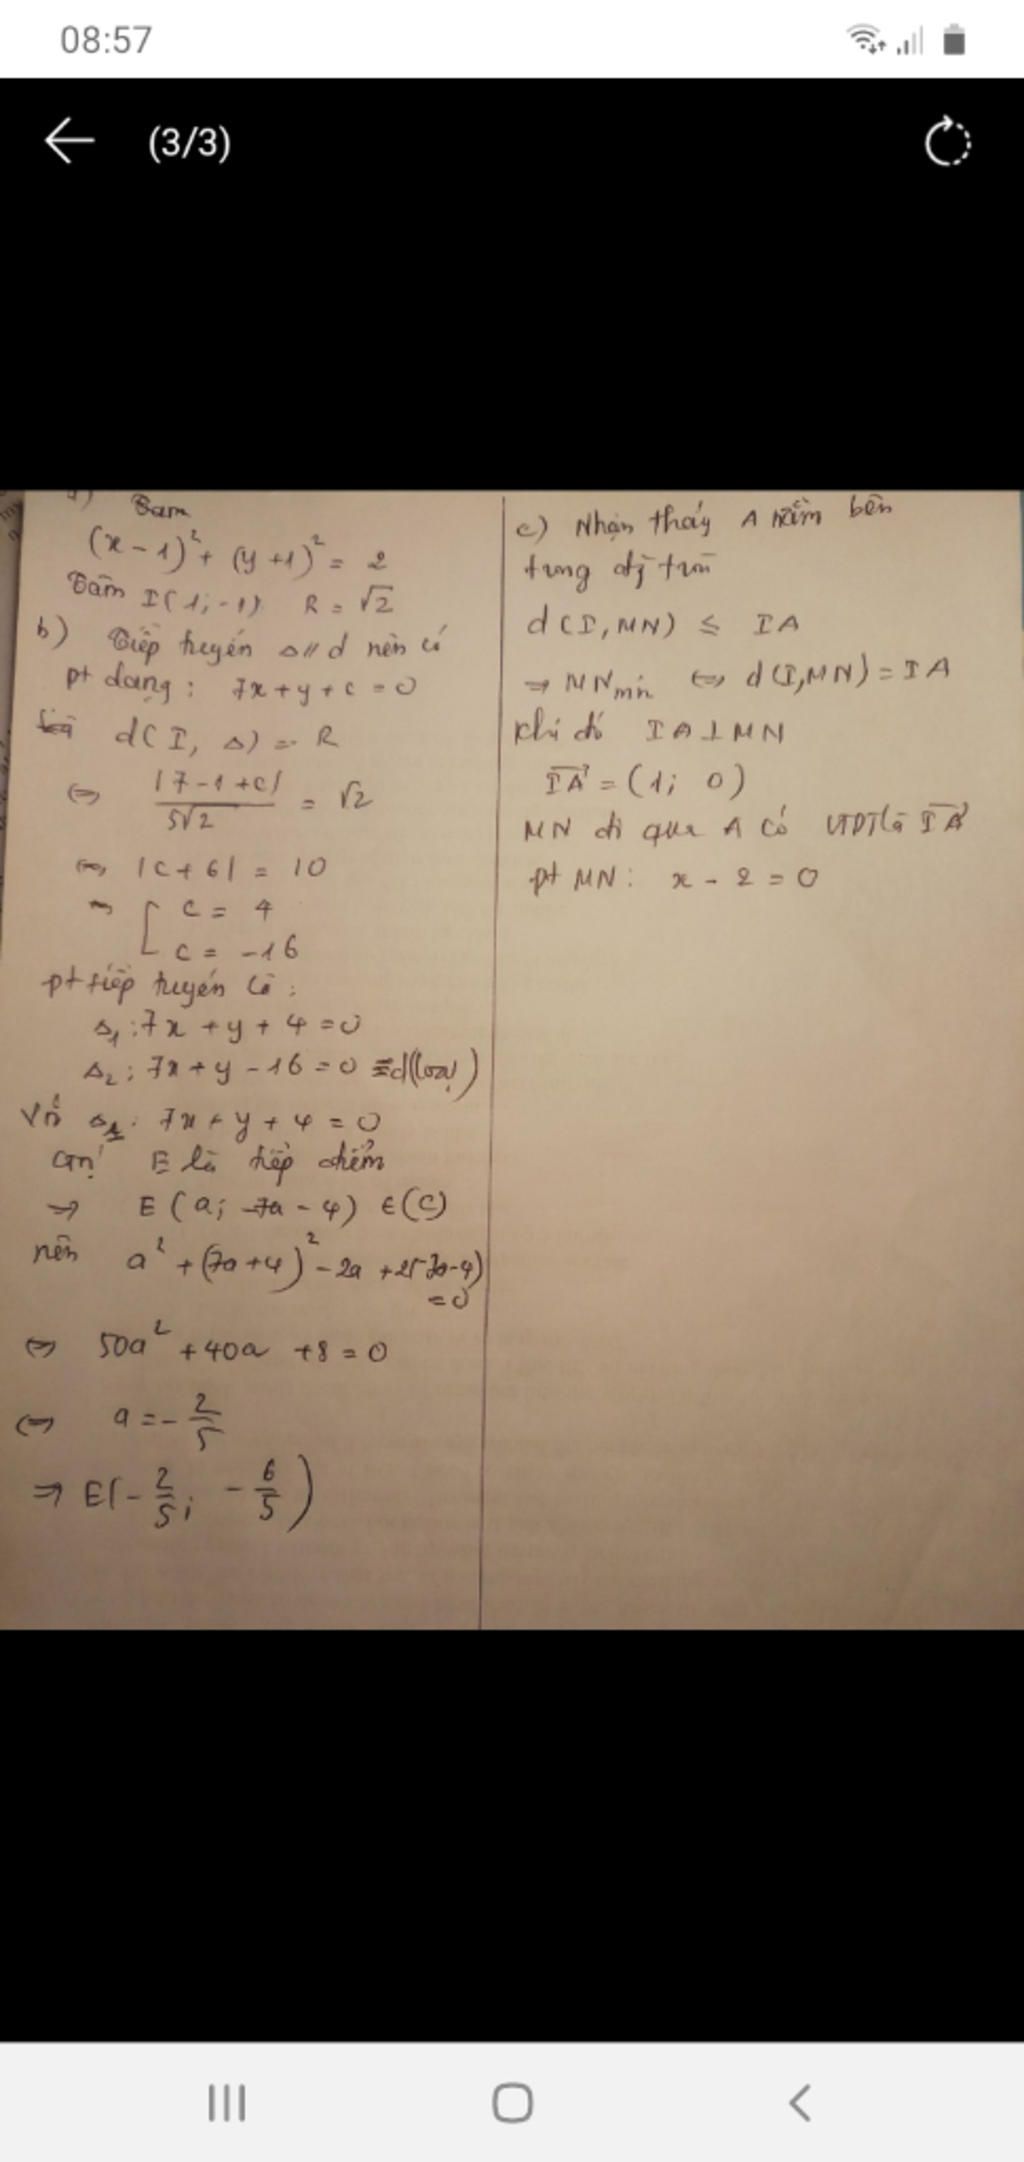 08:57
(3/3)
a) Tâm
(x-1)² + (y+1)² = 2
Tâm I(1;-1) R = √2
b) Tiếp tuyến Δ // d nên có
pt dạng: 7x + y + c = 0
d(I, Δ) = R
⇔ |7-1+c| / 5√2 = √2
⇔ |c+6| = 10
⇔ [ c = 4
c = -16
pt tiếp tuyến là:
Δ₁: 7x + y + 4 = 0
Δ₂: 7x + y - 16 = 0 ≡ d (loại)
Với Δ₁: 7x + y + 4 = 0
Gọi E là tiếp điểm
⇒ E(a; -7a-4) ∈ (C)
nên a² + (7a+4)² - 2a + 2(-7a-4)
= 0
⇔ 50a² + 40a + 8 = 0
⇔ a = -2/5
⇒ E(-2/5; -6/5)
c) Nhận thấy A nằm bên
trong
d(I, MN) ≤ IA
⇒ MNmin ⇔ d(I,MN) = IA
khi đó IA ⊥ MN
IA→ = (1; 0)
MN đi qua A có VTPT là IA→
pt MN: x - 2 = 0